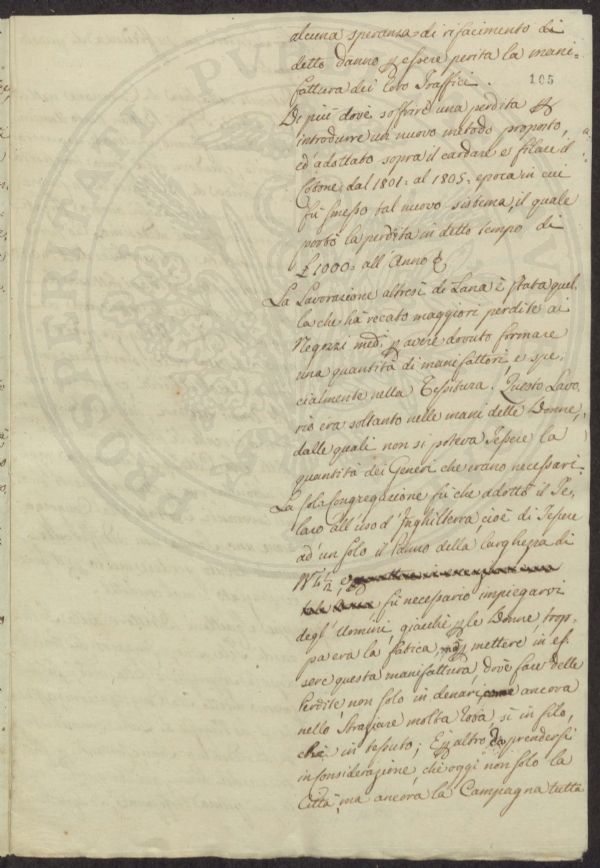 alcuna speranza di rifacimento di
detto danno p essere perita la mani=
fattura dei loro Traffici.
105
Di più dovè soffrire una perdita p
introdurre un nuovo metodo proposto,
ed'adottato sopra il cardare e filare il
Cotone, dal 1801. al 1805. epoca in cui
fù smesso tal nuovo sistema, il quale
portò la perdita in detto tempo di
£ 1000. all'Anno
La Lavorazione altresì di Lana è stata quel,
la che hà recato maggiori perdite ai
Negozzi med. p avere dovuto formare
una quantità di manifattori, e spe,
cialmente nella Tessitura. Questo Lavo,
rio era soltanto nelle mani delle Donne,
dalle quali non si poteva Tessere la
quantità dei Generi che erano necessarj.
La sol Congregazione fù che adottò il Te,
laro all'uso d'Inghilterra, cioè di Tessere
ad'un solo il Panno della larghezza di
fù necessario impiegarvi
degl'Uomini, giacchè p le Donne trop,
pa era la fatica, mettere in es,
sere questa manifattura, dovè fare delle
Perdite, non solo in denari, ancora
nello Straziare molta roba, sì in filo,
che in tessuto; E p altro da prendersi
in considerazione, che oggi non solo la
Città, ma ancora la Campagna tutta
PROSPERITATI PVBLICAE